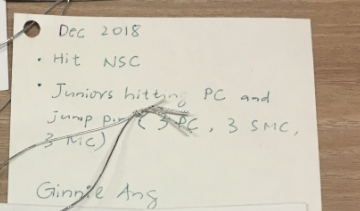 Dec 2018
• Hit NSC
• Juniors hitting PC and
jump pin (3 PC, 3 SMC,
3 MC)
Ginnie Ang